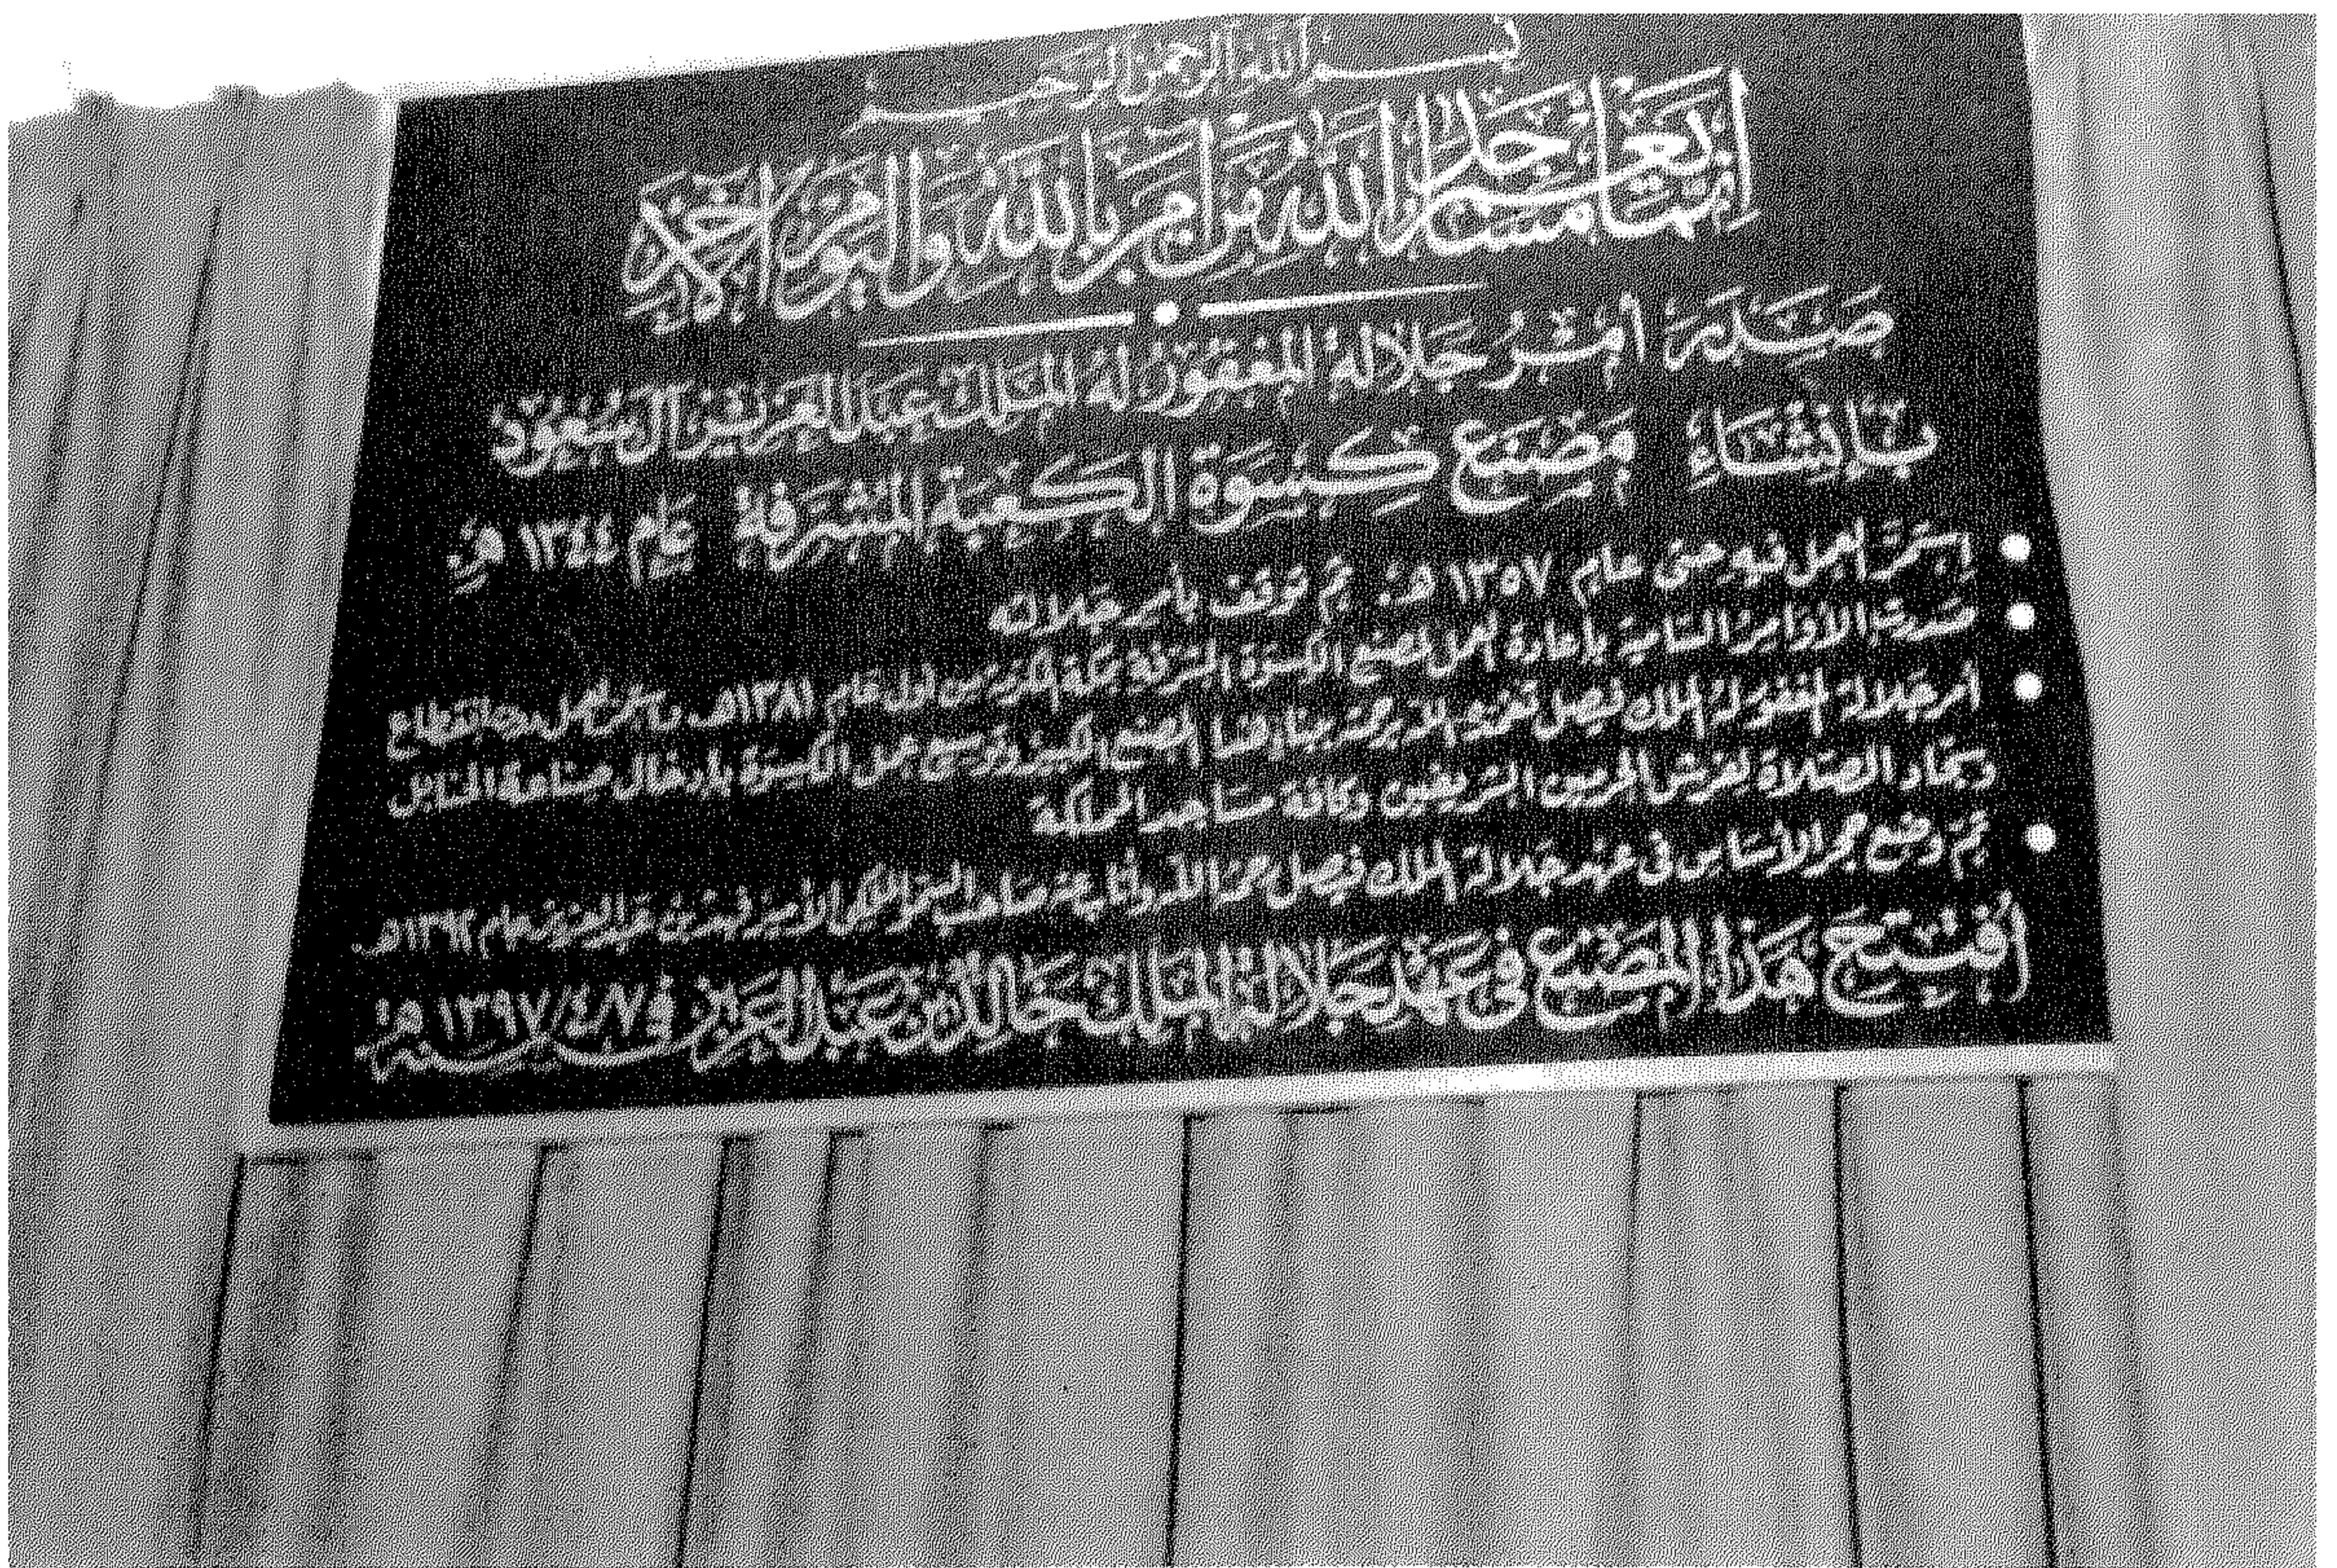 بسم الله الرحمن الرحيم
إنما يعمر مساجد الله من آمن بالله واليوم الآخر
صدر أمر جلالة المغفور له الملك عبد العزيز آل سعود
بإنشاء مصنع كسوة الكعبة المشرفة عام ١٣٤٤ هـ
استمر العمل فيه حتى عام ١٣٥٧ هـ ثم توقف بأمر جلالته
صدرت الأوامر السامية بإعادة العمل لمصنع الكسوة المشرفة بمكة المكرمة من أول عام ١٣٨١هـ العمل بدون انقطاع
أمر جلالة المغفور له الملك فيصل المصنع الكبير وتوسيع عمل الكسوة بإدخال صناعة
وسجاد الصلاة لفرش الحرمين الشريفين وكافة مساجد المملكة
تم وضع حجر الأساس في عهد جلالة الملك فيصل صاحب السمو الملكي الأمير فهد بن عبد العزيز عام
أفتتح هذا المصنع في عهد جلالة الملك خالد بن عبد العزيز في ١٣٩٧/٤/٧ هـ